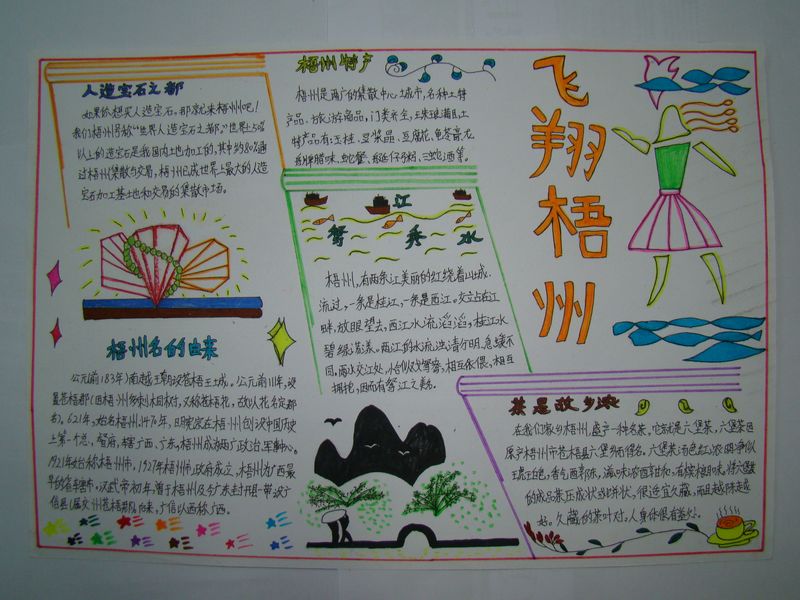 飞翔梧州
人造宝石之都
如果你想买人造宝石，那就来梧州吧！
我们梧州号称“世界人造宝石之都，”世界上5%
以上的人造宝石是我国内土地加工的，其中约80%通
过梧州集散与交易，梧州已成世界上最大的人造
宝石加工基地和交易的集散市场。
梧州名的由来
公元前183年)南越王朝设苍梧王城。公元前111年，设
621年，始名梧州，1470年，明宪宗在梧州创设中国历史
上第一个总督府，辖广西、广东，梧州成为两广政治、军事中心。
1921年始称梧州市，1927年梧州市政府成立，梧州为广西最
早的省辖市。汉武帝初年，曾于梧州及今广东封开县一带设广
信县(属交州苍梧郡)由来，广信以西称广西。
梧州特产
梧州是两广的集散中心城市，名种土特
产品、旅游商品，门类齐全，
特产品有：玉桂、豆浆晶、豆腐花、龟苓膏、龙
腊味、蛇蟹、蛤蚧、三蛇酒等。
鸳江秀水
梧州，有两条江美丽的红绕着山城
流过，一条是桂江，一条是西江。交立在江
畔，放眼望去，西江水流滔滔，桂江水
碧绿荡漾。两江的水流浊清分明、急缓不
同。两水交江处，小似鸳鸯，相互依偎，相互
拥抱，因而有鸳江之美名。
茶是故乡浓
在我们家乡梧州，盛产一种名茶，它就是六堡茶，六堡茶因
原产梧州市苍梧县六堡乡而得名，六堡茶汤色红浓明净似
琥珀色，香气醇陈，滋味浓醇甘和，有槟榔味，将六堡
的成品茶压成状，很适宜久藏，而且越陈越
好。久藏的茶叶对人身体很有益处。